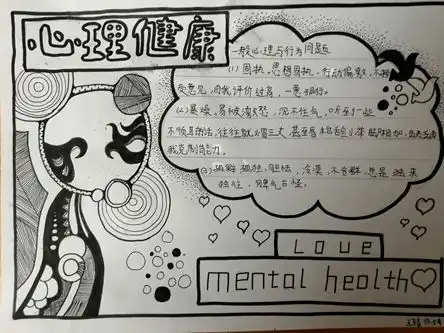 心理健康
一般心理与行为问题
(1) 固执。思想固执,行动偏激,不接
受意见,自我评价过高,一意孤行。
(2) 暴燥,易被激怒,沉不住气,听到一些
不顺耳的话,往往就火冒三丈,甚至唇枪舌剑 拳脚相加,
我克制能力。
(3) 孤僻 孤独,胆怯,冷漠,不合群,总是独来
独往,脾气古怪,
Love
mental health